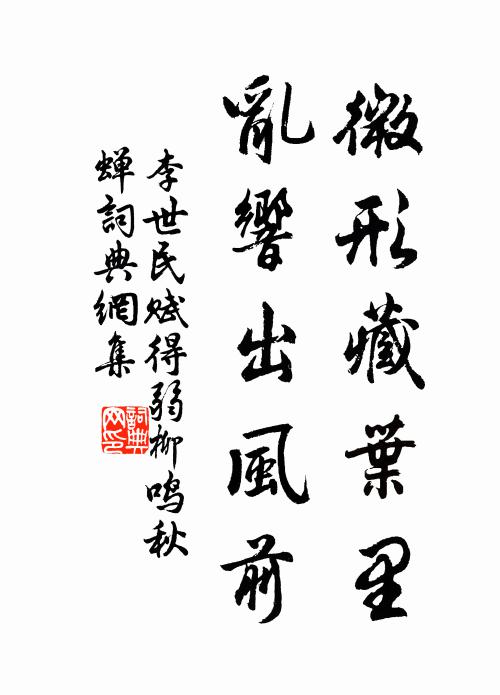 微形藏葉里
亂響出風前
李世民赋得弱柳鸣秋
蝉詞典網集
詞典网印